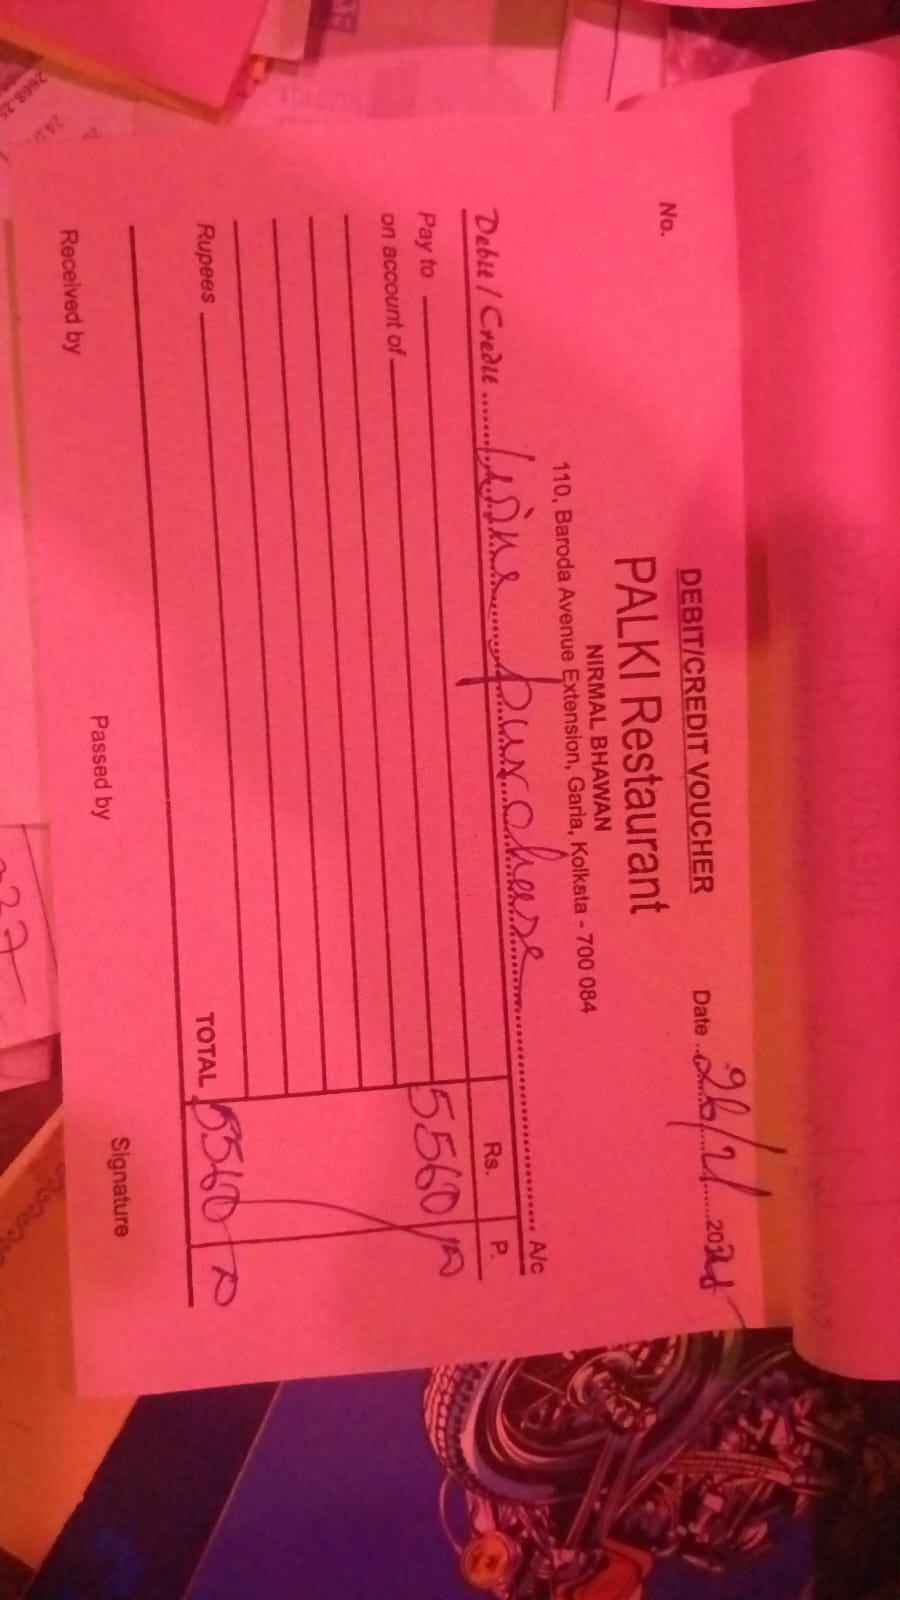 DEBIT/CREDIT VOUCHER
No. Date 26/2/2025
PALKI Restaurant
NIRMAL BHAWAN
110, Baroda Avenue Extension, Garia, Kolkata - 700 084
Debit / Credit purcheese A/c
Rs. P.
Pay to 5560
on account of
Rupees TOTAL 5560
Received by Passed by Signature